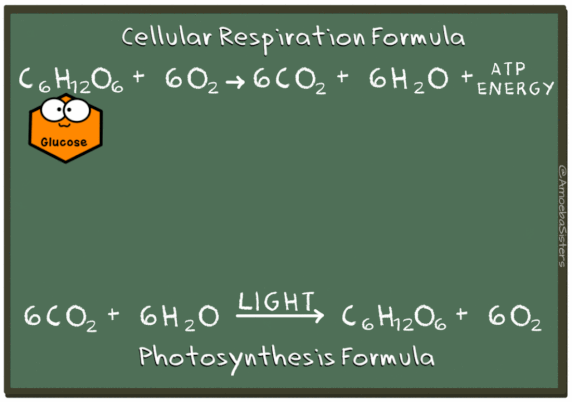 Cellular Respiration Formula
C₆H₁₂O₆ + 6O₂ → 6CO₂ + 6H₂O + ATP ENERGY
Glucose
@AmoebaSisters
6CO₂ + 6H₂O LIGHT → C₆H₁₂O₆ + 6O₂
Photosynthesis Formula